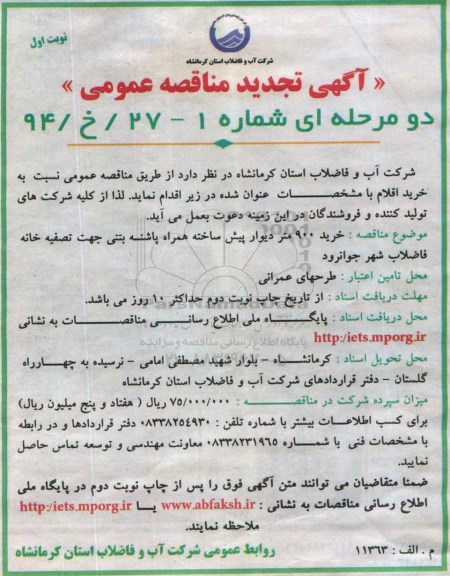 نوبت اول
شرکت آب و فاضلاب استان کرمانشاه
« آگهی تجدید مناقصه عمومی »
دو مرحله ای شماره ۱ - ۲۷ / خ /۹۴
شرکت آب و فاضلاب استان کرمانشاه در نظر دارد از طریق مناقصه عمومی نسبت به
خرید اقلام با مشخصات عنوان شده در زیر اقدام نماید. لذا از کلیه شرکت های
تولید کننده و فروشندگان در این زمینه دعوت بعمل می آید.
موضوع مناقصه : خرید ۹۰۰ متر دیوار پیش ساخته همراه پاشنه بتنی جهت تصفیه خانه
فاضلاب شهر جوانرود
محل تامین اعتبار : طرحهای عمرانی
مهلت دریافت اسناد : از تاریخ چاپ نوبت دوم حداکثر ۱۰ روز می باشد.
محل دریافت اسناد : پایگاه ملی اطلاع رسانی مناقصات به نشانی
http:/iets.mporg.ir
محل تحویل اسناد : کرمانشاه - بلوار شهید مصطفی امامی - نرسیده به چهارراه
گلستان - دفتر قراردادهای شرکت آب و فاضلاب استان کرمانشاه
میزان سپرده شرکت در مناقصه : ۷۵/۰۰۰/۰۰۰ ریال ( هفتاد و پنج میلیون ریال)
برای کسب اطلاعات بیشتر با شماره تلفن : ۰۸۳۳۸۲۵۴۹۳۰ دفتر قراردادها و در رابطه
با مشخصات فنی با شماره ۰۸۳۳۸۲۳۱۹۶۵ معاونت مهندسی و توسعه تماس حاصل
نمایید.
ضمنا متقاضیان می توانند متن آگهی فوق را پس از چاپ نوبت دوم در پایگاه ملی
اطلاع رسانی مناقصات به نشانی : www.abfaksh.ir یا http:/iets.mporg.ir
ملاحظه نمایند.
م . الف : ۱۱۳۶۳
روابط عمومی شرکت آب و فاضلاب استان کرمانشاه